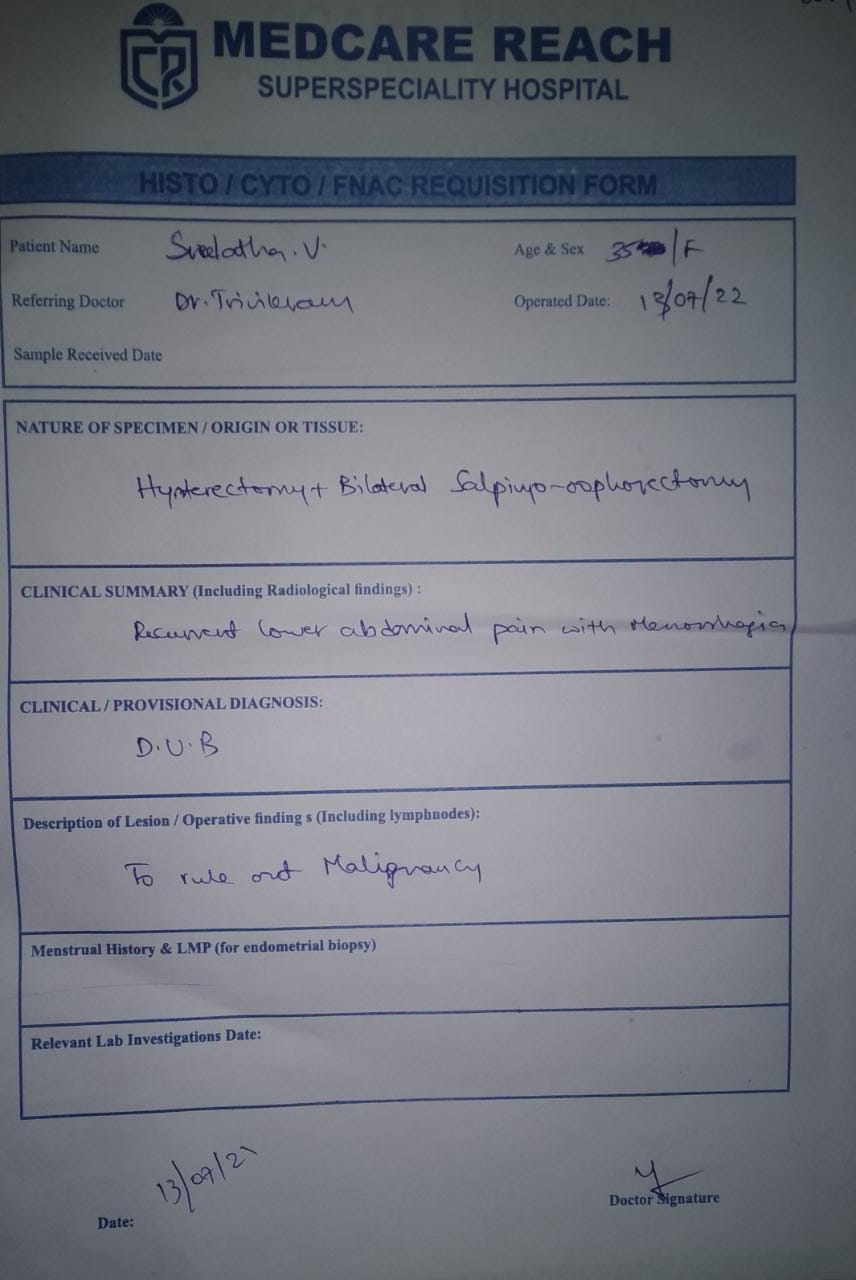 MEDCARE REACH
SUPERSPECIALITY HOSPITAL
HISTO / CYTO / FNAC REQUISITION FORM
Patient Name Sreelatha. V. Age & Sex 35 /F
Referring Doctor Dr. Trivikram Operated Date: 13/07/22
Sample Received Date
NATURE OF SPECIMEN / ORIGIN OR TISSUE:
Hysterectomy + Bilateral Salpingo-oophorectomy
CLINICAL SUMMARY (Including Radiological findings) :
Recurrent lower abdominal pain with Menorrhagia
CLINICAL / PROVISIONAL DIAGNOSIS:
D.U.B
Description of Lesion / Operative finding s (Including lymphnodes):
To rule out Malignancy
Menstrual History & LMP (for endometrial biopsy)
Relevant Lab Investigations Date:
Date: 13/07/2
Doctor Signature